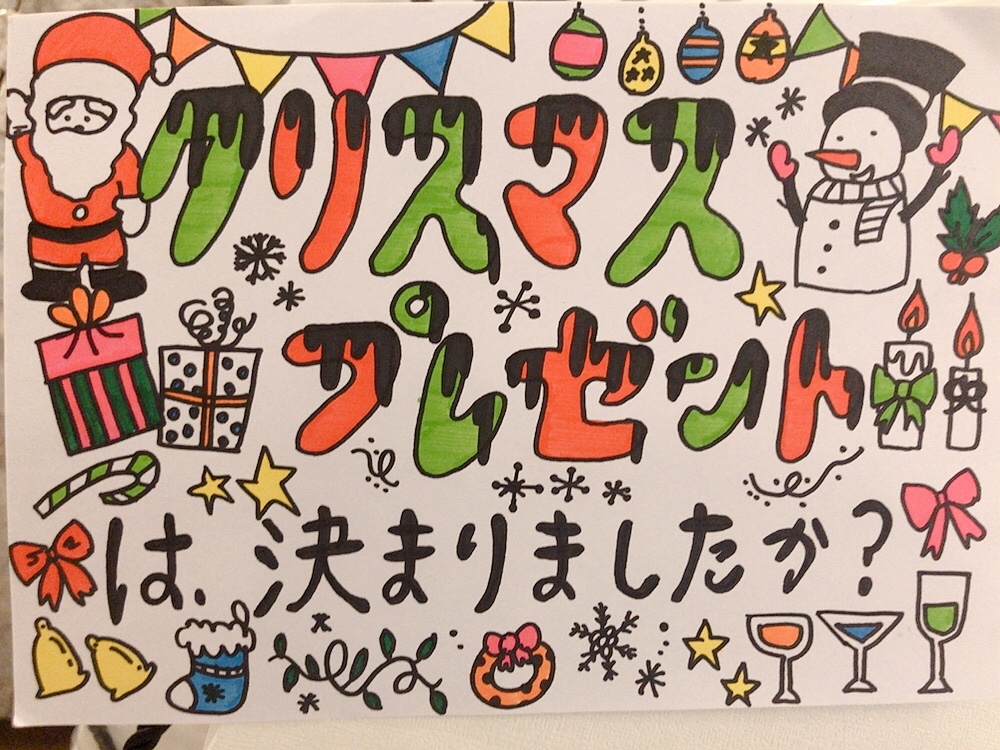 クリスマス
プレゼント
は、決まりましたか?